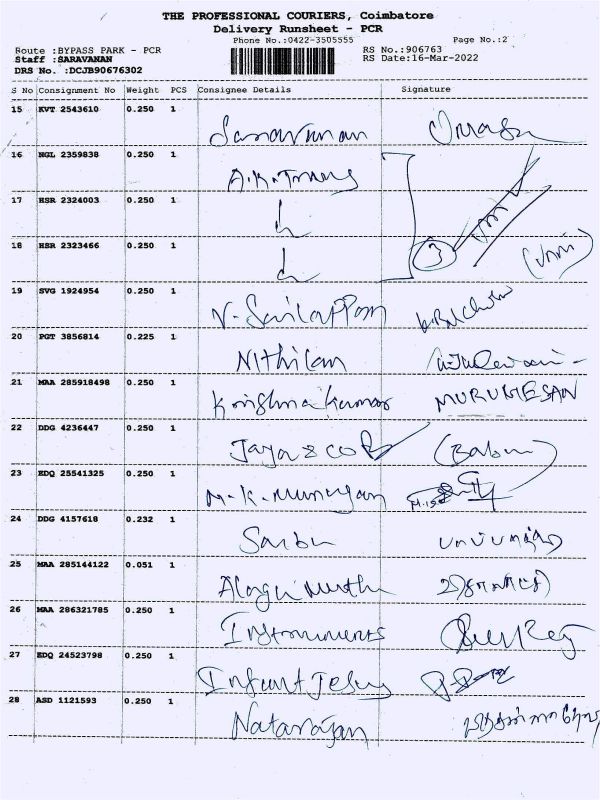 THE PROFESSIONAL COURIERS, Coimbatore
Delivery Runsheet - PCR
Phone No.:0422-3505555
Page No.:2
Route :BYPASS PARK - PCR
RS No.:906763
Staff :SARAVANAN
RS Date:16-Mar-2022
DRS No. :DCJB90676302
S No Consignment No Weight PCS Consignee Details Signature
15 KVT 2543610 0.250 1 Saravanan
16 NGL 2359838 0.250 1
17 HSR 2324003 0.250 1
18 HSR 2323466 0.250 1 3
19 SVG 1924954 0.250 1
20 PGT 3856814 0.225 1 Nithilan
21 MAA 285918498 0.250 1 Krishna Kumar MURUGESAN
22 DDG 4236447 0.250 1 Jaya & Co (Babu)
23 EDQ 25541325 0.250 1 M.K. Murugan
24 DDG 4157618 0.232 1 Saibu
25 MAA 285144122 0.051 1 Alagu Muthu
26 MAA 286321785 0.250 1 Instruments
27 EDQ 24523798 0.250 1 Infant Jesus
28 ASD 1121593 0.250 1 Natarajan